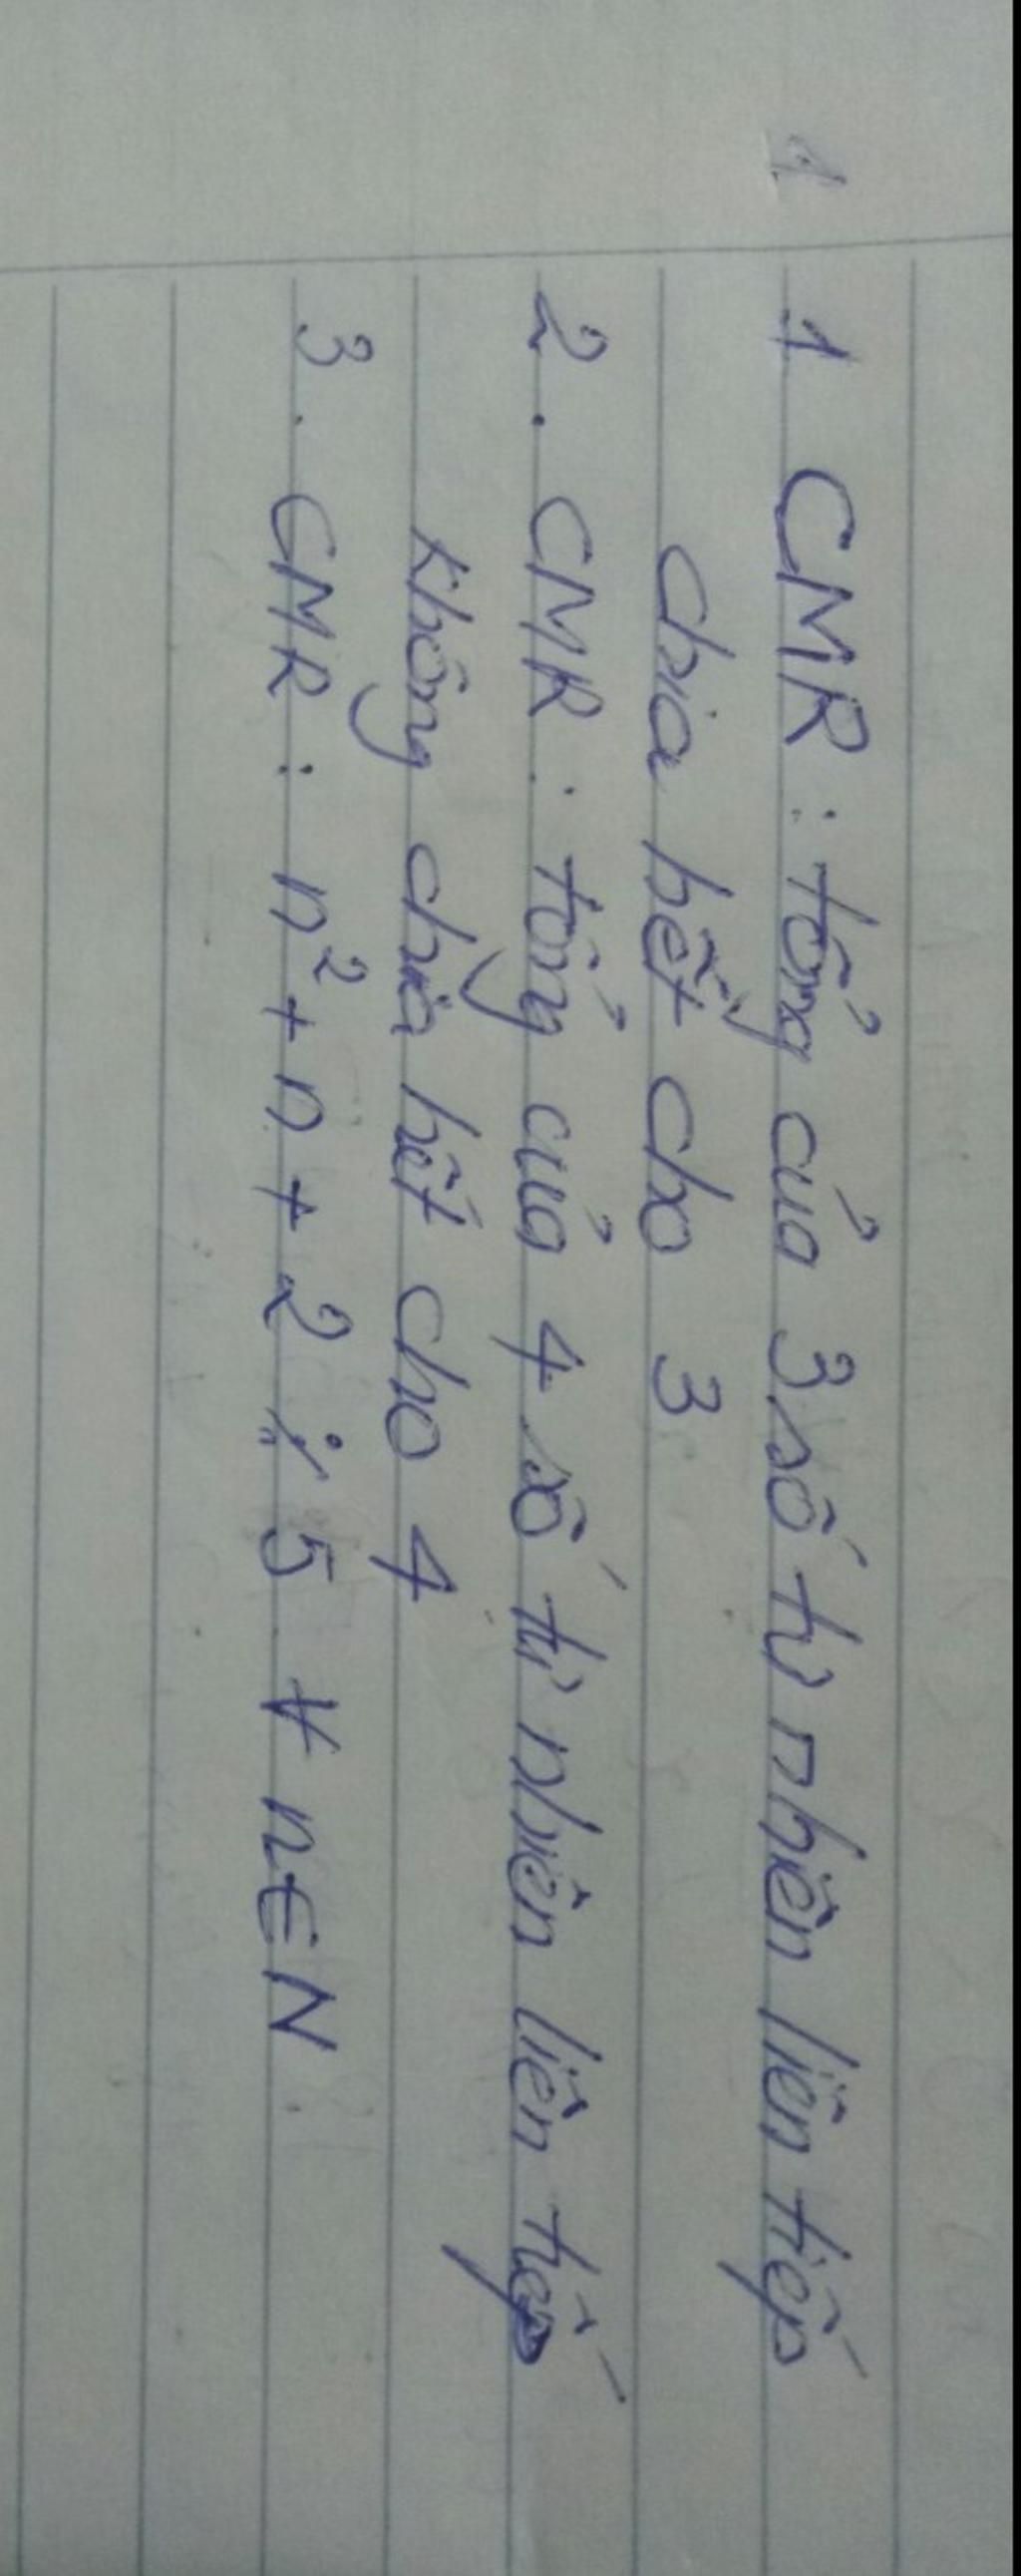 1
1 CMR : tổng của 3 số tự nhiên liên tiếp
chia hết cho 3
2. CMR : tổng của 4 số tự nhiên liên tiếp
không chia hết cho 4
3. CMR : n² + n + 2 ⋮̸ 5 ∀ n ∈ N.